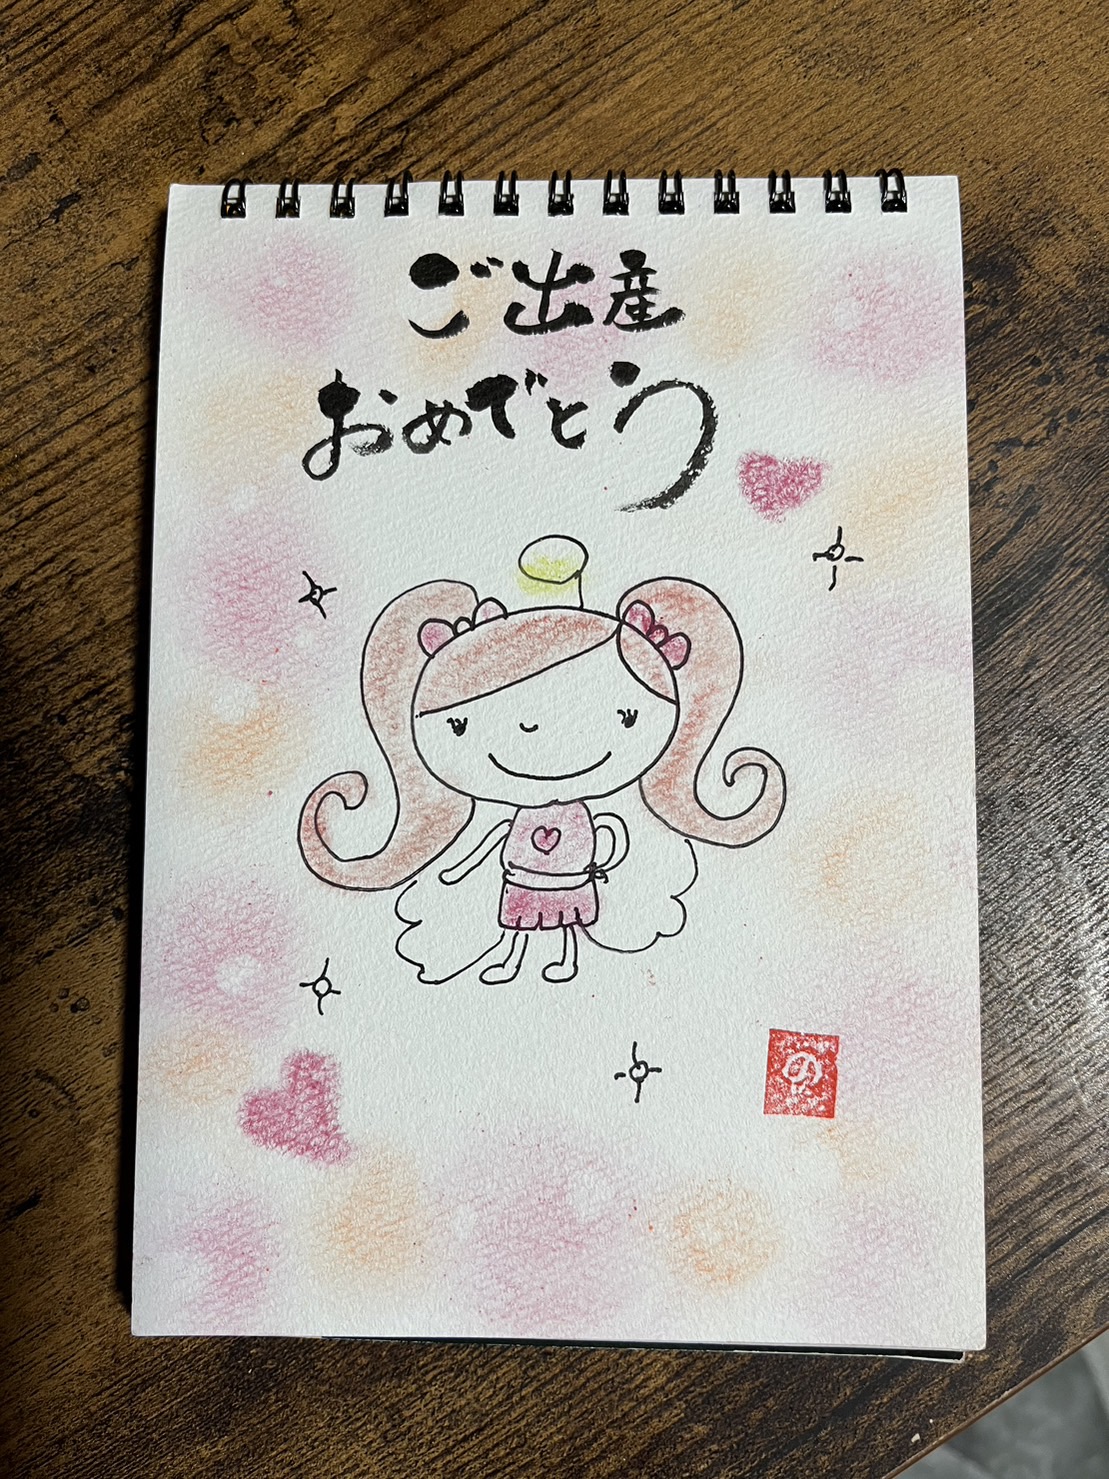 ご出産
おめでとう
の